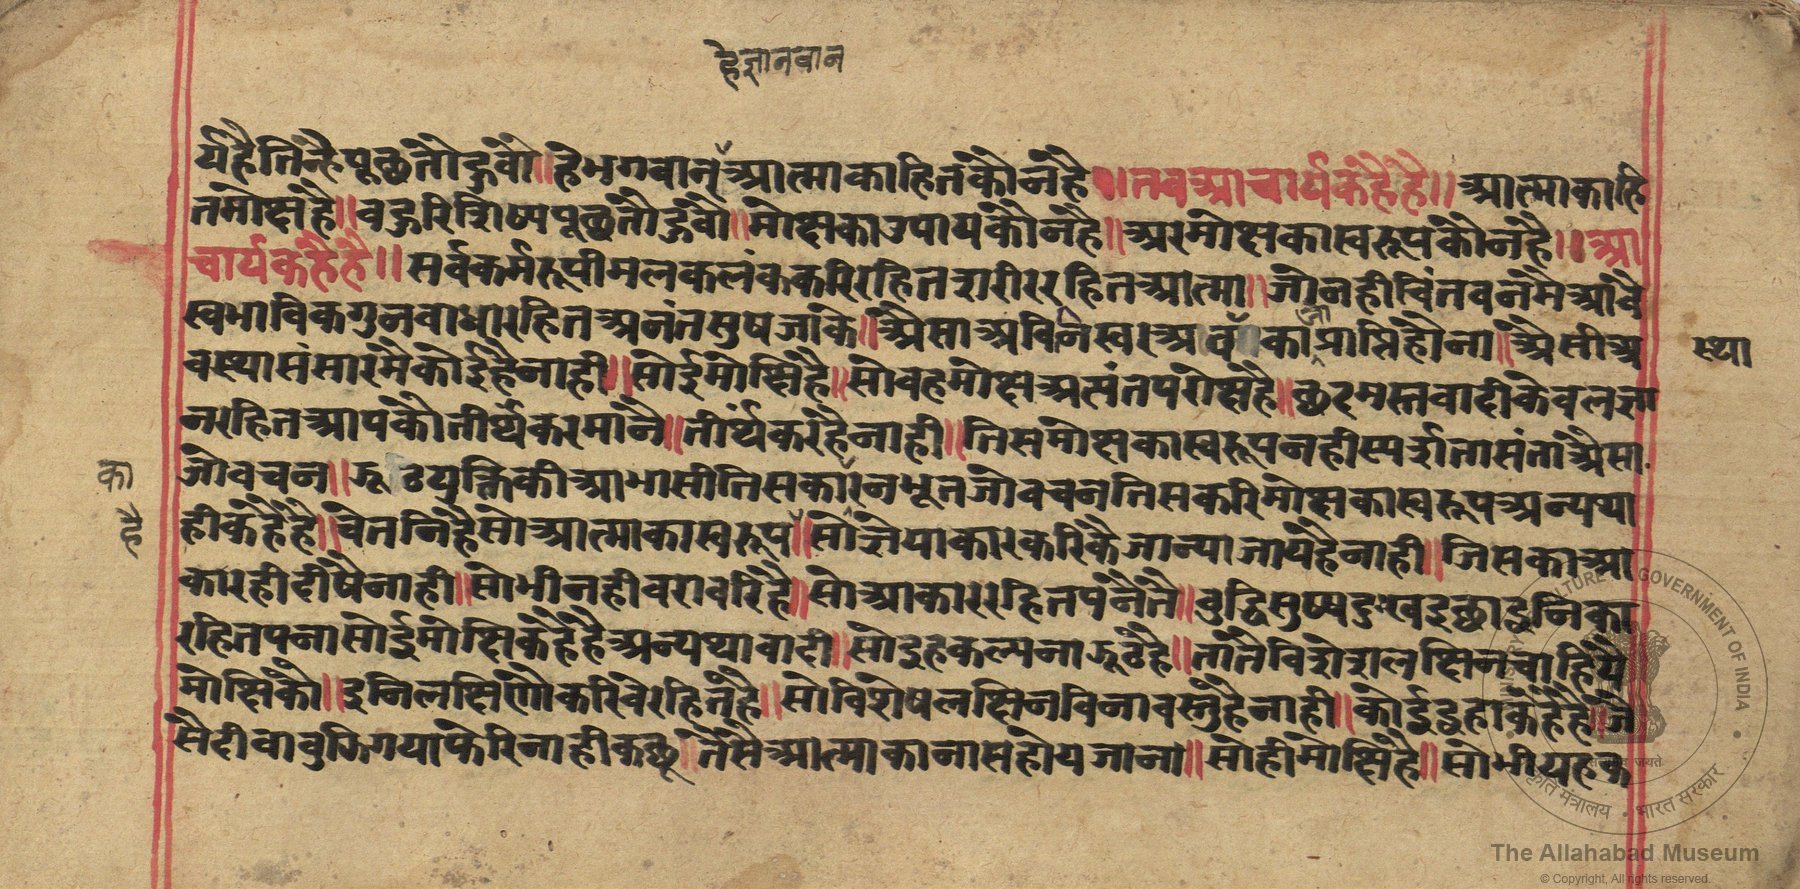 हैज्ञानवान
र्यहैतिन्हैपूछतौहूवौ॥हेभगवान्आत्माकाहितकौनहै॥तवआचार्यकहैहै॥आत्माकाहि
तमोक्षहै॥वहुरिशिष्यपूछतौहूवौ॥मोक्षकाउपायकौनहै॥अरमोक्षकास्वरूपकौनहै॥आ
चार्यकहैहै॥सर्वकर्मरूपीमलकलंककरिरहितशरीररहितआत्मा॥जोनहीचिंतवनमैआवै
स्वभाविकगुनवाधारहितअनंतसुषजाके॥अैसाअविनस्वरअव काप्राप्तिहोना॥अैसीअ
स्था
वस्थासंसारमैकोईहैनाही॥सोईमोक्षिहै॥सोवहमोक्षअत्यंतपरोक्षहै॥छदमस्तवादीकेवलज्ञा
नरहितआपकौतीर्थंकरमानै॥तीर्थंकरहैनाही॥तिसमोक्षकास्वरूपनहीस्पर्शतासंताअैसा
का
जोवचन॥झूठयुक्तिकीआभासीतिसकारनभूतजोवचनतिसकरिमोक्षकास्वरूपअन्यथा
है
हीकहैहै॥चेतनिहैसोआत्माकास्वरूप॥सोज्ञेयाकारकरिकैजान्याजायहैनाही॥जिसकाआ
कारहीदीषैनाही॥सोभीनहीवरावरिहै॥सोआकाररहितपनैतै॥वुद्धिसुष्यदुःखइछाइनिका
रहितपनासोईमोक्षिकहैहैअन्यथावादी॥सोइहकल्पनाझूठहै॥तातैविशेशलक्षिनचाहियै
मोक्षिकौ॥इनिलक्षिणौकरिवेरहितहै॥सोविशेषलक्षिनविनावस्तुहैनाही॥कोईइहाकहैहै॥जै
सैदीवावुझिगयाफेरिनाहीकछू॥तैसैआत्माकानासहोयजाना॥सोहीमोक्षिहै॥सोभीयहक
The Allahabad Museum
© Copyright, All rights reserved.